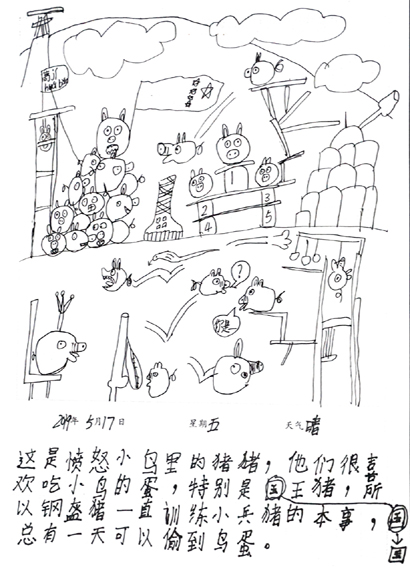 ?
2 3
4 5
2019年 5月17日 星期五 天气晴
这是愤怒小鸟里的猪猪，他们很喜
欢吃小鸟的蛋，特别是国王猪，所
以钢盔猪一直训练小兵猪的本事，
总有一天可以偷到鸟蛋。
国
国